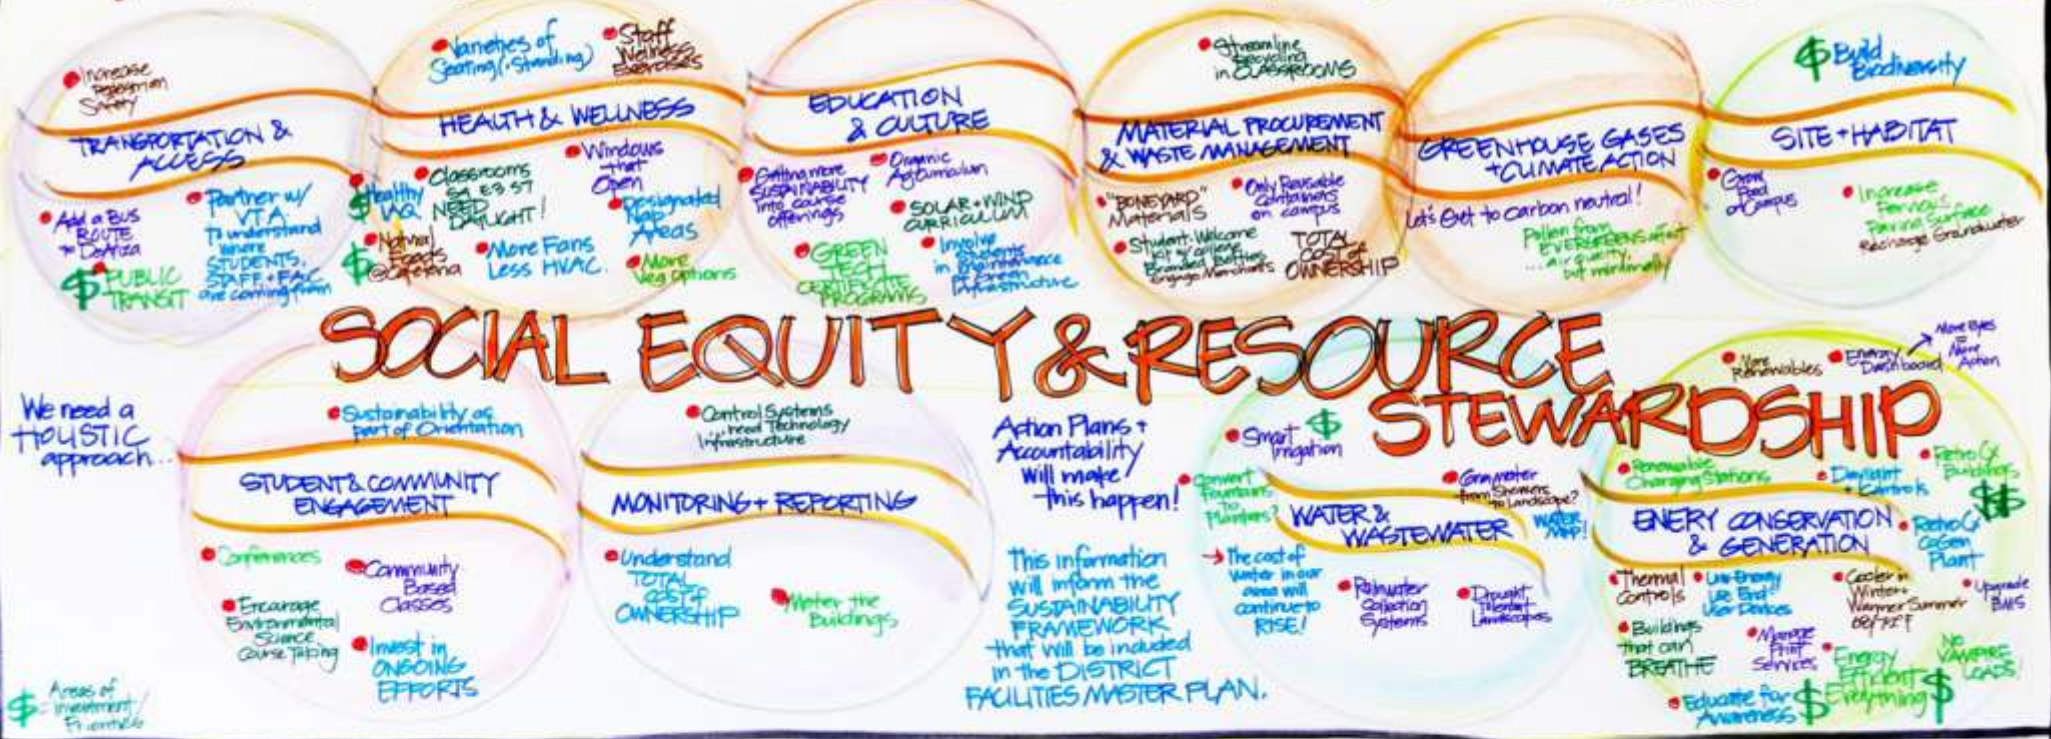 Increase
Pedestrian
Safety
TRANSPORTATION &
ACCESS
Add a BUS
ROUTE
to DeAnza
PUBLIC
TRANSIT
Partner w/
VTA
to understand
where
STUDENTS,
STAFF + FAC
are coming from
Varieties of
Seating (+Standing)
Staff
Wellness
Exercises
HEALTH & WELLNESS
Healthy
IAQ
Classrooms
S4 E3 S7
NEED
DAYLIGHT!
Windows
that
Open
Designated
Nap
Areas
Natural
Foods
@ Cafeteria
More Fans
Less HVAC.
More
Veg options
EDUCATION
& CULTURE
Getting more
SUSTAINABILITY
into course
offerings
Organic
Ag Curriculum
SOLAR + WIND
CURRICULUM
GREEN
TECH
CERTIFICATE
PROGRAMS
Involve
Students
in
of Green
Infrastructure
Streamline
Recycling
in CLASSROOMS
MATERIAL PROCUREMENT
& WASTE MANAGEMENT
"BONEYARD"
Materials
Only Reusable
Containers
on campus
Student Welcome
Kit
Branded Bottles
Engage Merchants
TOTAL
COST of
OWNERSHIP
GREENHOUSE GASES
+ CLIMATE ACTION
Let's Get to carbon neutral!
Pollen from
EVERGREENS affect
...air quality
but minimally
Build
Biodiversity
SITE + HABITAT
Grow
Food
on Campus
Increase
Pervious
Paving Surface
Recharge Groundwater
SOCIAL EQUITY & RESOURCE
STEWARDSHIP
We need a
HOLISTIC
approach...
Sustainability as
part of Orientation
STUDENT & COMMUNITY
ENGAGEMENT
Conferences
Community
Based
Classes
Encourage
Environmental
Science
Course Taking
Invest in
ONGOING
EFFORTS
$ = Areas of
Investment/
Priorities
Control Systems
need Technology
Infrastructure
MONITORING + REPORTING
Understand
TOTAL
COST of
OWNERSHIP
Meter the
Buildings
Action Plans +
Accountability
will make
this happen!
This information
will inform the
SUSTAINABILITY
FRAMEWORK
that will be included
in the DISTRICT
FACILITIES MASTER PLAN.
Smart
Irrigation
Convert
Fountains
to
Planters?
Graywater
from Showers
to Landscape?
WATER &
WASTEWATER
WATER
MAP!
The cost of
water in our
area will
continue to
RISE!
Rainwater
Collection
Systems
Drought
Tolerant
Landscapes
More
Renewables
Energy
Dashboard
More Eyes
=
More
Action
Renewable
Charging Stations
Daylight
+ Controls
Retro Cx
Buildings
ENERY CONSERVATION
& GENERATION
Retro Cx
CoGen
Plant
Thermal
Controls
Low Energy
Use End
User Devices
Cooler in
Winter +
Warmer Summer
68/78F
Upgrade
BMS
Buildings
that can
BREATHE
Manage
Print
Services
Energy
Efficient
Everything
No
VAMPIRE
LOADS!
Educate for
Awareness